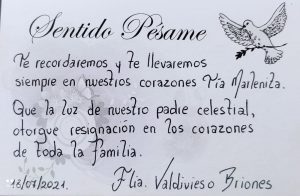 Sentido Pésame
Te recordaremos y te llevaremos
siempre en nuestros corazones Tía Marlenita.
Que la luz de nuestro padre celestial,
otorque resignación en los corazones
de toda la familia.
18/07/2021. Flia. Valdivieso Briones